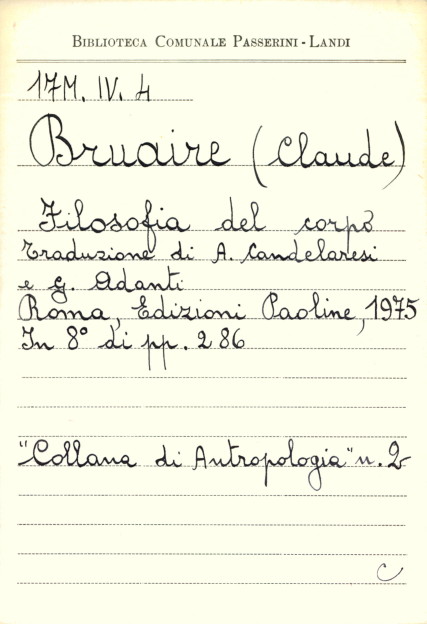 BIBLIOTECA COMUNALE PASSERINI - LANDI
17M. IV. 4
Bruaire (Claude)
Filosofia del corpo
Traduzione di A. Candelaresi
e G. Adanti
Roma, Edizioni Paoline, 1975
In 8° di pp. 286
"Collana di Antropologia" n. 2
C